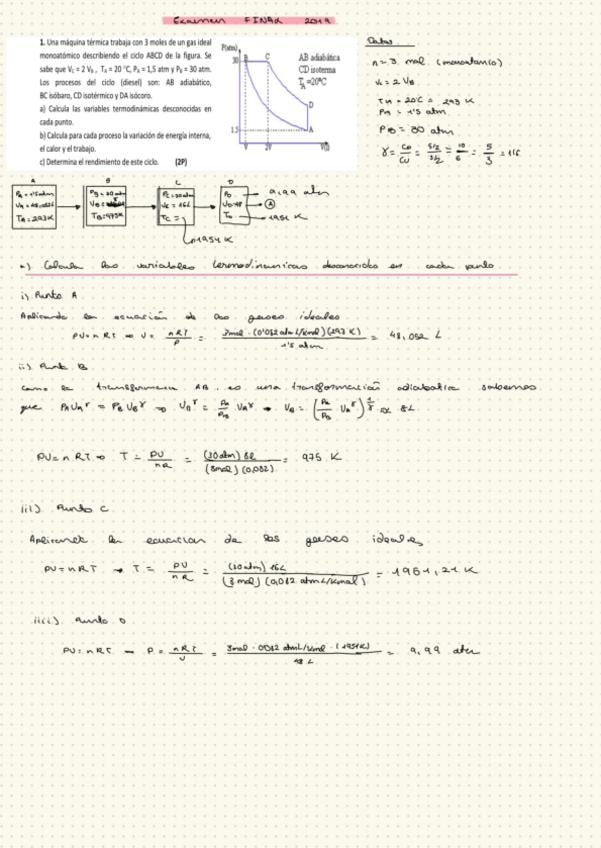 Examen FINAL 2019
1. Una máquina térmica trabaja con 3 moles de un gas ideal
monoatómico describiendo el ciclo ABCD de la figura. Se
sabe que VC = 2 VB , TA = 20 °C, PA = 1,5 atm y PB = 30 atm.
Los procesos del ciclo (diesel) son: AB adiabático,
BC isóbaro, CD isotérmico y DA isócoro.
a) Calcula las variables termodinámicas desconocidas en
cada punto.
b) Calcula para cada proceso la variación de energía interna,
el calor y el trabajo.
c) Determina el rendimiento de este ciclo. (2P)
P(atm)
30
B
C
D
A
1.5
V
2V
AB adiabática
CD isoterma
TA =20ºC
Datos
n = 3 mol (monoatómico)
Vc = 2 VB
TA = 20°C = 293 K
PA = 1'5 atm
PB = 30 atm
γ = Cp/Cv = 5/2 / 3/2 = 10/6 = 5/3 = 1'6
A
PA = 1'5 atm
TA = 293K
B
PB = 30 atm
TB = 975K
C
PC = 30 atm
VC = 16L
TC =
1951 K
D
PD
9,99 atm
TD
1951 K
a) Calcula las variables termodinamicas desconocidas en cada punto
i) Punto A
Aplicando la ecuación de los gases ideales
PV = nRT ⇒ V = nRT/P = 3mol · (0'082 atm L/Kmol)(293 K) / 1'5 atm = 48,052 L
ii) Punto B
como la transformación AB es una transformación adiabatica sabemos
que PAVA^γ = PBVB^γ ⇒ VB^γ = PA/PB VA^γ → VB = (PA/PB VA^γ)^1/γ ≈ 8L
PV = nRT ⇒ T = PV/nR = (30atm) 8L / (3mol)(0,082) = 975 K
iii) Punto C
Aplicando la ecuacion de los gases ideales
PV = nRT → T = PV/nR = (30atm) 16L / (3 mol)(0,082 atm L/Kmol) = 1951,21 K
iiii) Punto D
PV = nRT → P = nRT/V = 3mol · 0'082 atmL/Kmol · (1951K) / 48 L = 9,99 atm